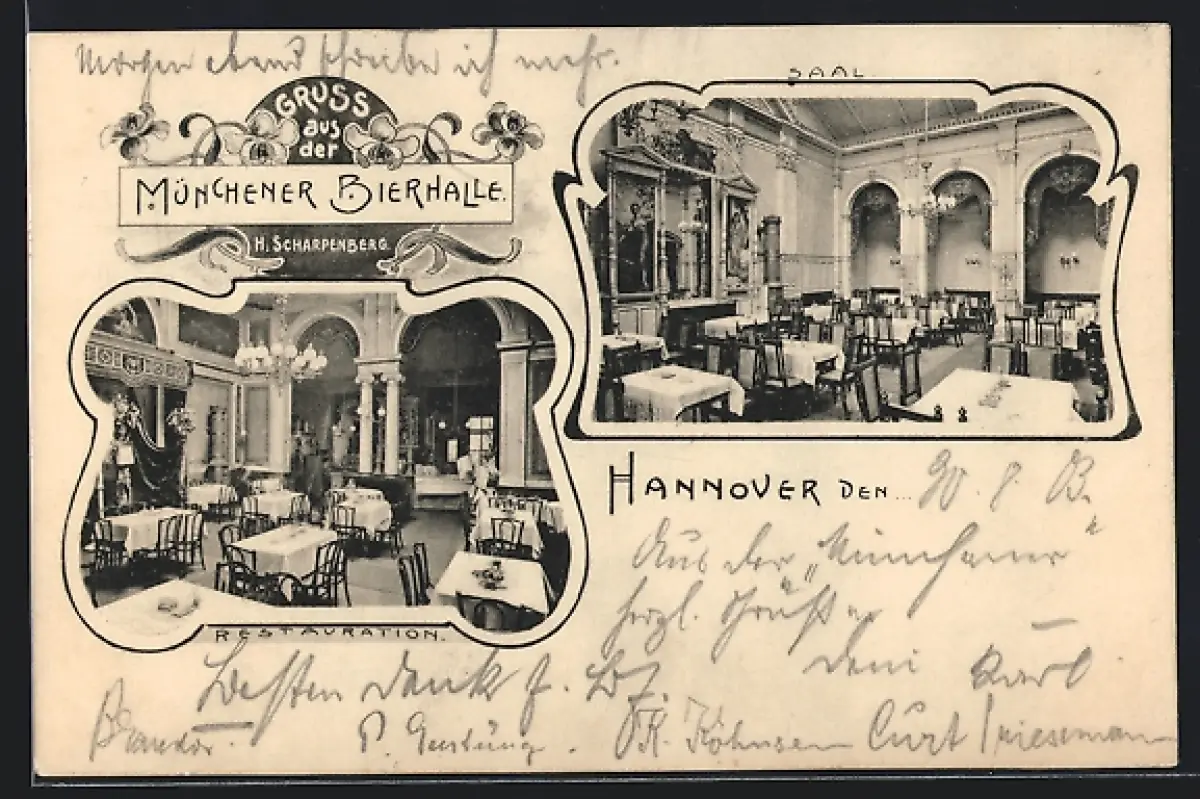 Morgen abend schreibe ich mehr.
GRUSS
aus
der
MÜNCHENER BIERHALLE.
H. SCHARPENBERG.
SAAL.
RESTAURATION.
HANNOVER DEN... 8. 03.
Aus der „Münchener“
herzl. Grüße
Dein Karl
Besten Dank f.
P.
Köhnsen
Curt